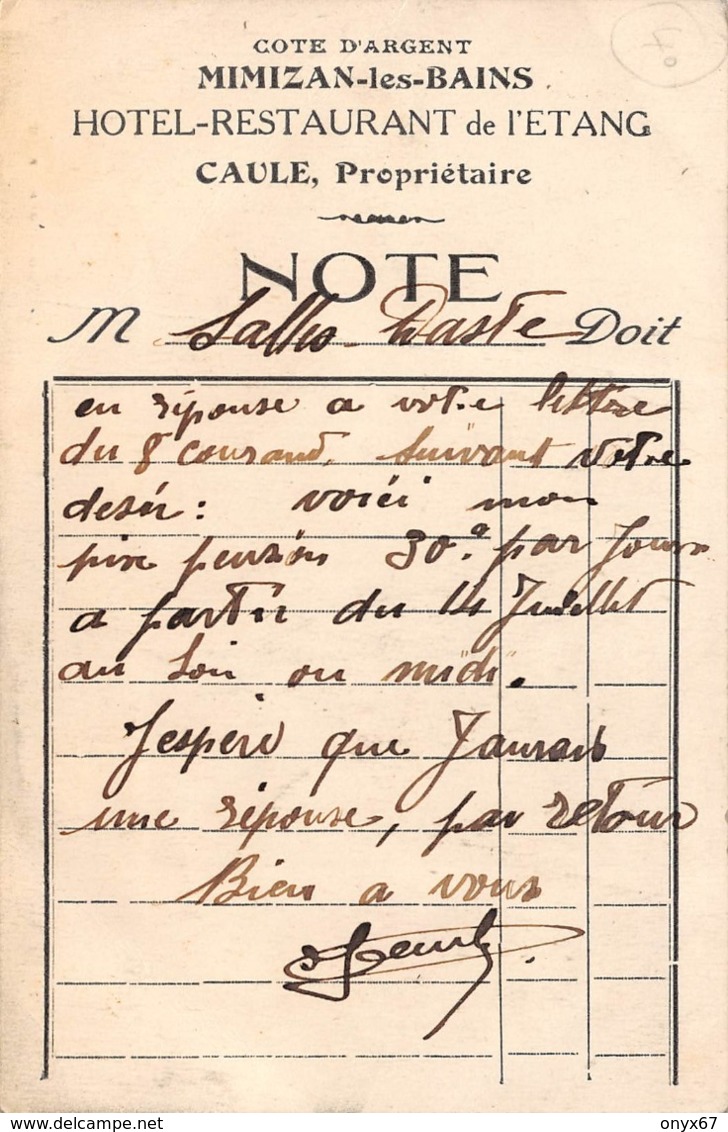 COTE D'ARGENT
MIMIZAN-les-BAINS
HOTEL-RESTAURANT de l'ETANG
CAULE, Propriétaire
NOTE
M Daste Doit
en réponse a votre lettre
du 8 courand. suivant votre
desir: voiçi mon
prix pension 30.ª par Jours
a partir du 14 Juillet
au soir ou midi.
Jespère que Jaurais
une réponse, par retour
Bien a vous
70
delcampe.net
onyx67